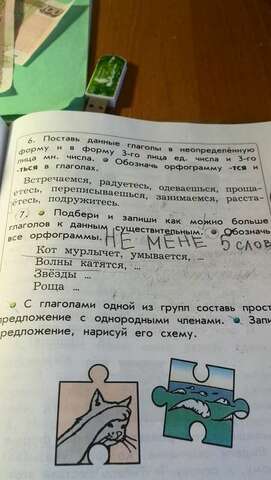 6. Поставь данные глаголы в неопределённую
форму и в форму 3-го лица ед. числа и 3-го
лица мн. числа. Обозначь орфограмму -тся и
-ться в глаголах.
Встречаемся, радуетесь, одеваешься, проща-
етесь, переписываешься, занимаемся, расста-
ётесь, подружитесь.
7. Подбери и запиши как можно больше
глаголов к данным существительным. Обозначь
все орфограммы. НЕ МЕНЕ 5 СЛОВ
Кот мурлычет, умывается, ...
Волны катятся, ...
Звёзды ...
Роща ...
С глаголами одной из групп составь прост
предложение с однородными членами. Запи
предложение, нарисуй его схему.